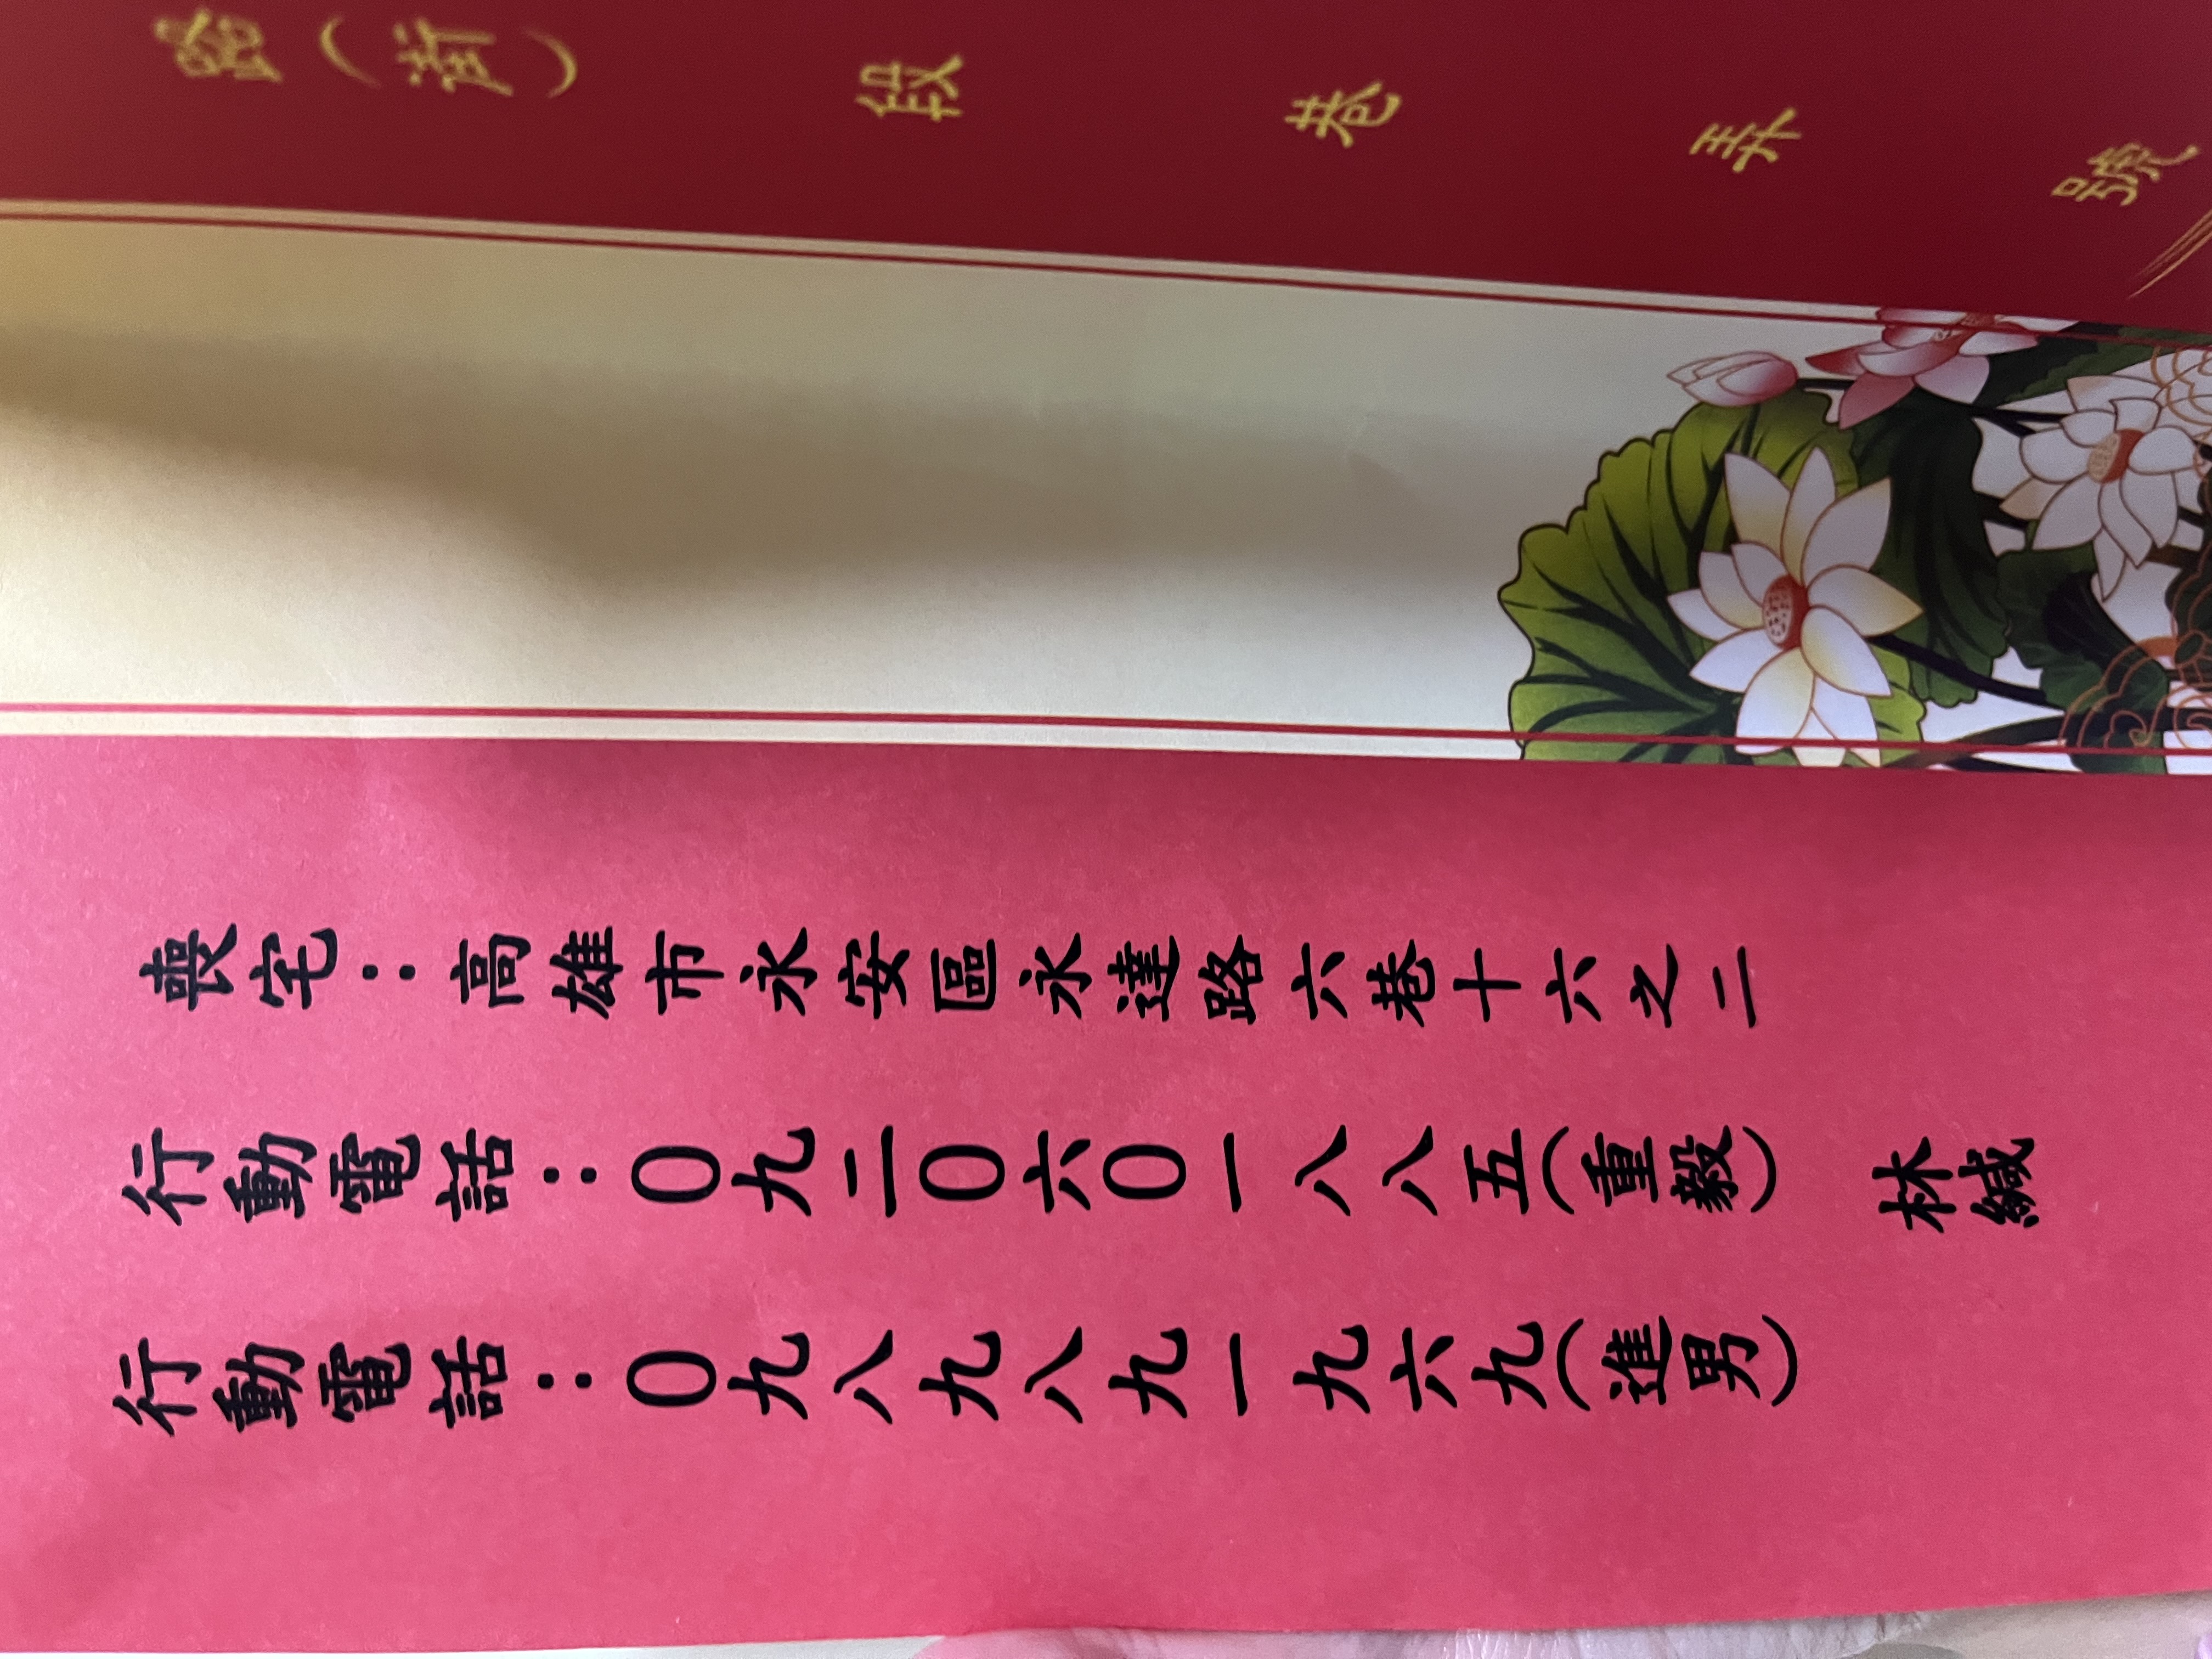 路(街) 段 巷 弄 號
喪宅：高雄市永安區永達路六巷十六之二
行動電話：〇九二〇六〇一八八五(重毅) 林緘
行動電話：〇九八九八九一九六九(進男)